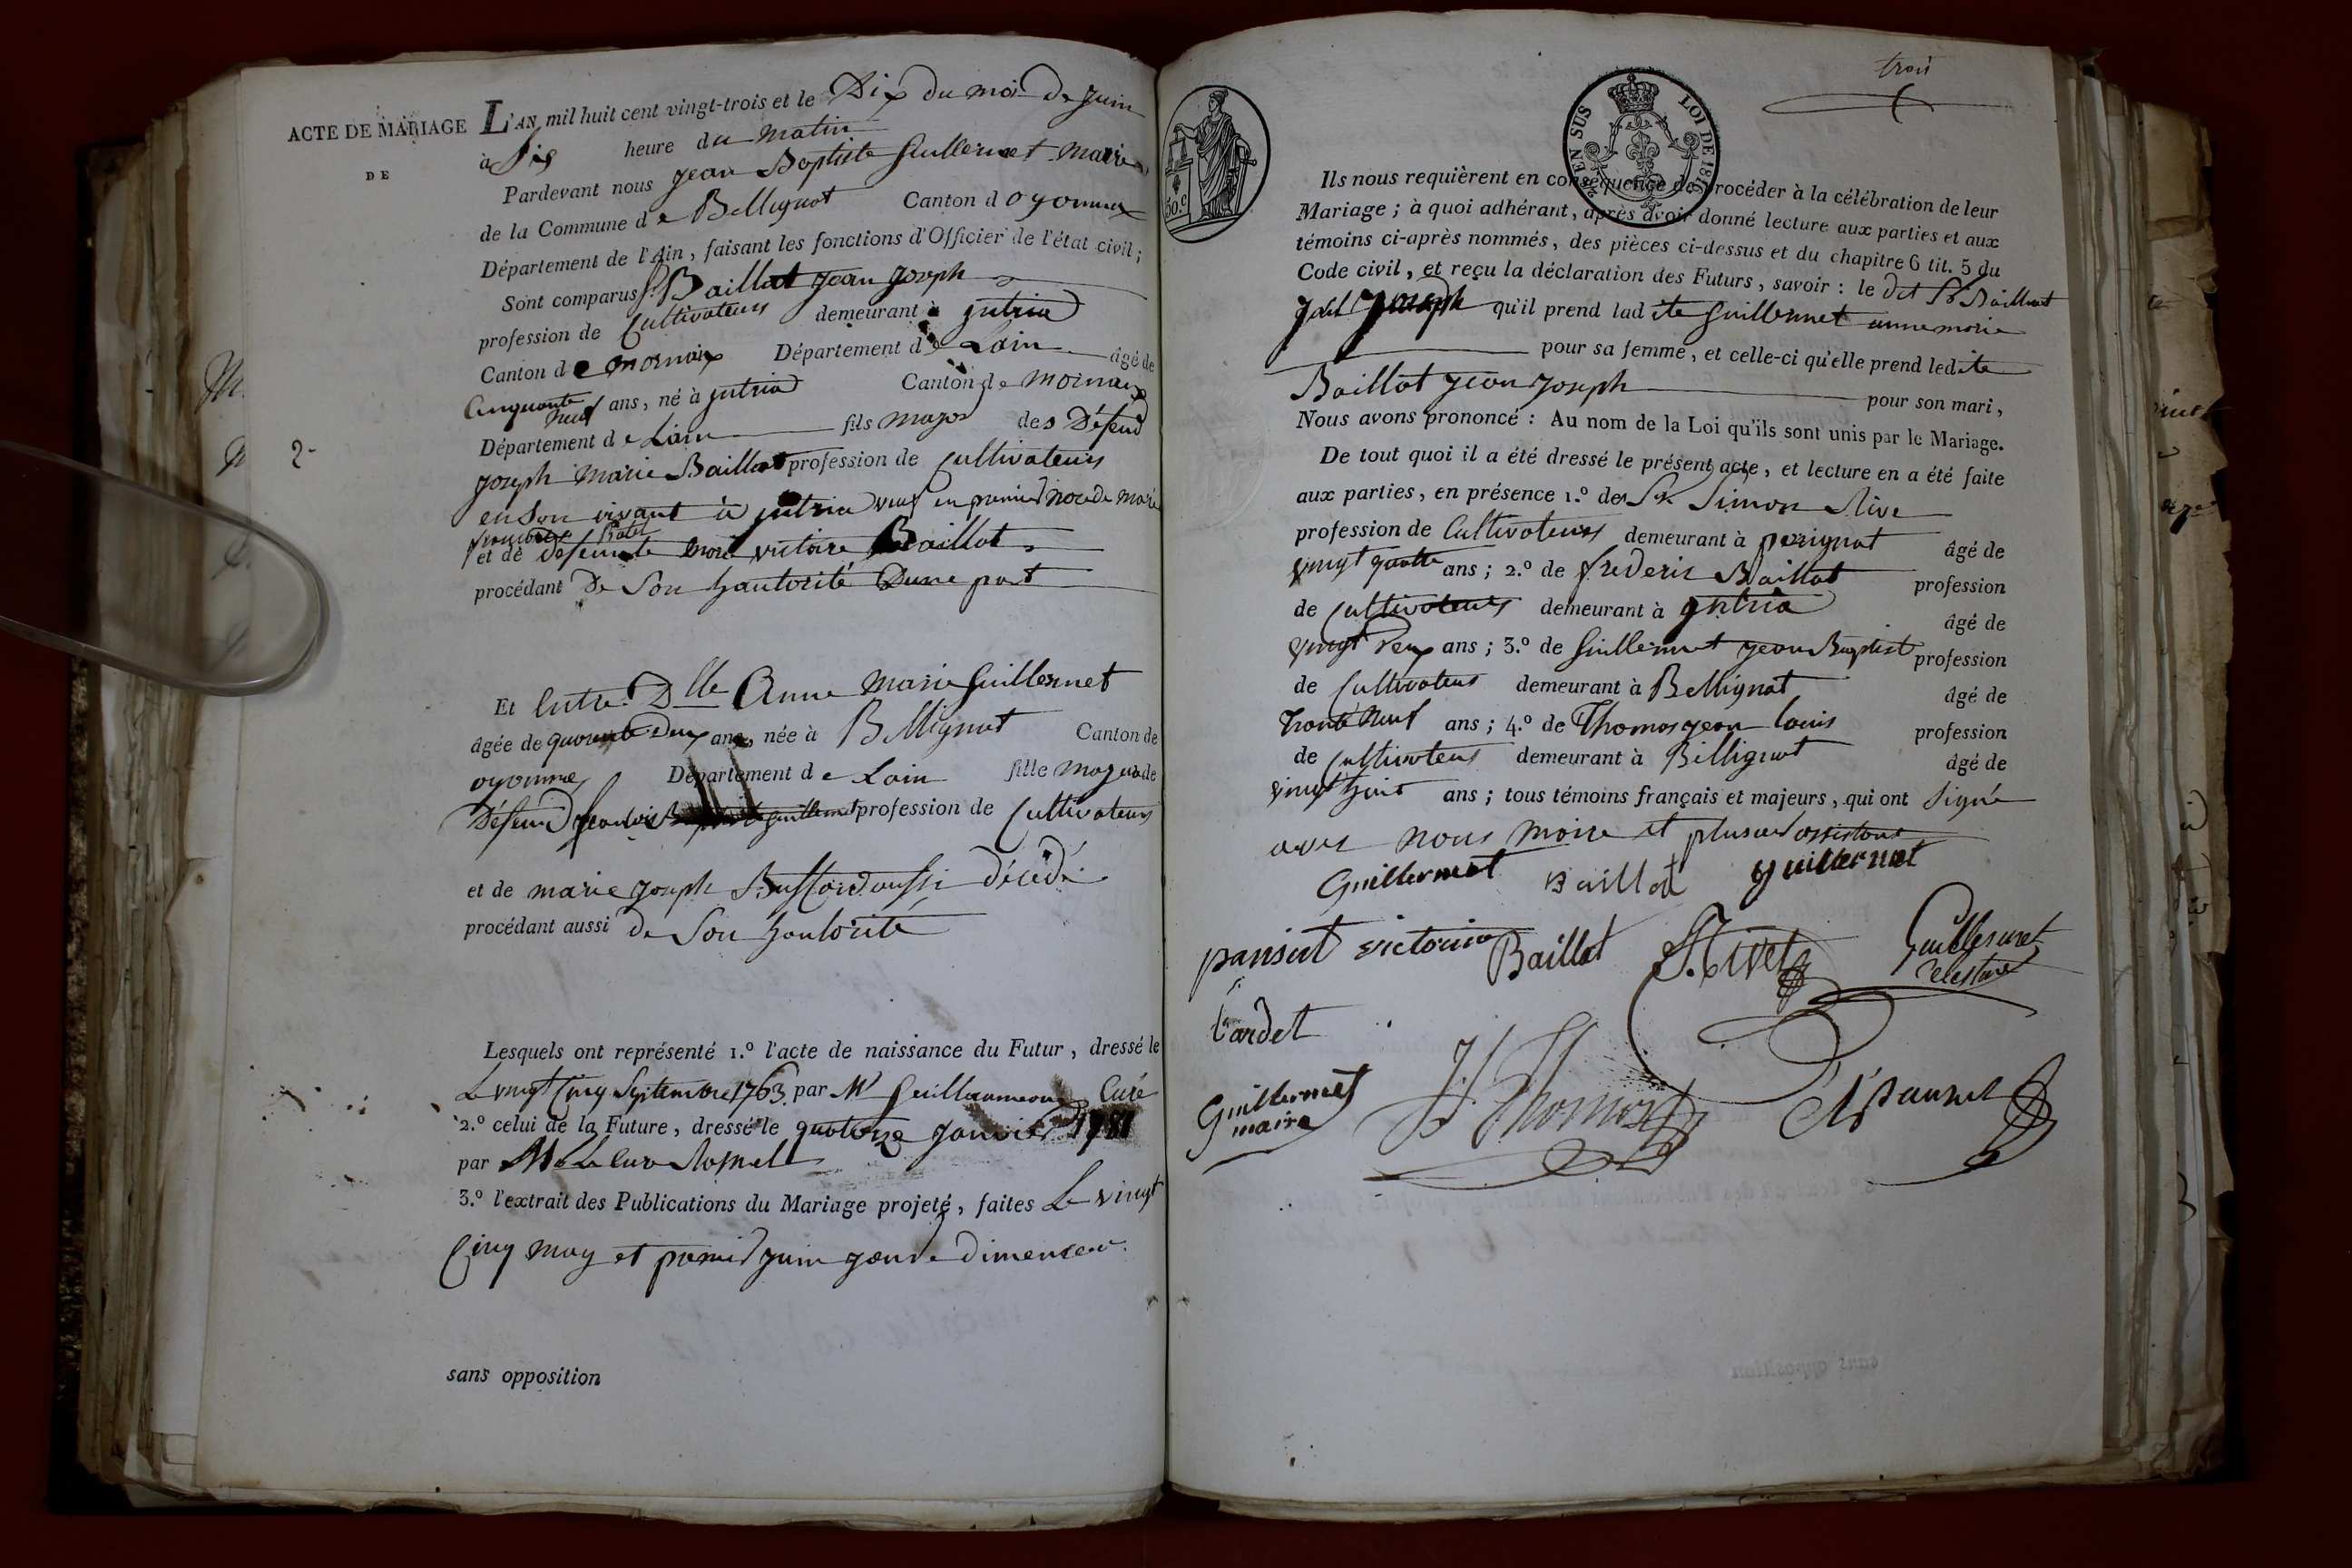 ACTE DE MARIAGE
DE
2-
L'AN mil huit cent vingt-trois et le Dix du moi De juin
à Six heure du matin
Pardevant nous jean Baptiste Guillermet maire
de la Commune de Bellignat Canton d oyonnax
Département de l'Ain, faisant les fonctions d'Officier de l'état civil;
Sont comparus Sr Baillat jean joseph
profession de Cultivateurs demeurant à jntria
Canton de mornaix Département de Lain âgé de
Cinquante neuf ans, né à jntria Canton de mornaix
Département de Lain fils major des Défend
joseph marie Baillat profession de Cultivateurs
en Son vivant à jntria veuf en premier noce de marie
et de Defeunte marie victoire Baillat
procédant De Son hautorité Dune part
Et Entre Dlle Anne marie Guillermet
âgée de quarente Deux ans, née à Bellignat Canton de
oyonnax Département de Lain fille majeur de
Défeund profession de Cultivateurs
et de marie joseph Buffard aussi décédé
procédant aussi de Son hautorité
Lesquels ont représenté 1.º l'acte de naissance du Futur, dressé le
Le vingt Cinq Septembre 1763 par Mr Curé
2.º celui de la Future, dressé le quatorze janvier 1781
par Mr Le Curé
3.º l'extrait des Publications du Mariage projeté, faites Le vingt
Cinq may et premier juin jour de Dimence
sans opposition
trois
EN SUS
LOI DE 1816
50.c
Ils nous requièrent en conséquence de procéder à la célébration de leur
Mariage; à quoi adhérant, après avoir donné lecture aux parties et aux
témoins ci-après nommés, des pièces ci-dessus et du chapitre 6 tit. 5 du
Code civil, et reçu la déclaration des Futurs, savoir: le dit Sr Baillat
joseph qu'il prend ladite Guillermet anne marie
pour sa femme, et celle-ci qu'elle prend ledite
Baillat jean joseph pour son mari,
Nous avons prononcé: Au nom de la Loi qu'ils sont unis par le Mariage.
De tout quoi il a été dressé le présent acte, et lecture en a été faite
aux parties, en présence 1.º de Sr Simon
profession de Cultivateurs demeurant à perignat âgé de
vingt quatre ans; 2.º de frederic Baillat profession
de Cultivateurs demeurant à jntria âgé de
vingt Deux ans; 3.º de Guillermet jean Baptist profession
de Cultivateus demeurant à Bellignat âgé de
Trante Neuf ans; 4.º de Thomas jean louis profession
de Cultivateus demeurant à Bellignat âgé de
vingt huit ans; tous témoins français et majeurs, qui ont signé
avec nous maire et plusieur assistans
Guillermet Baillat guillermet
pansut victoire Baillat Guillermet
Celestine
tardet
Guillermet
maire
JL Thomas